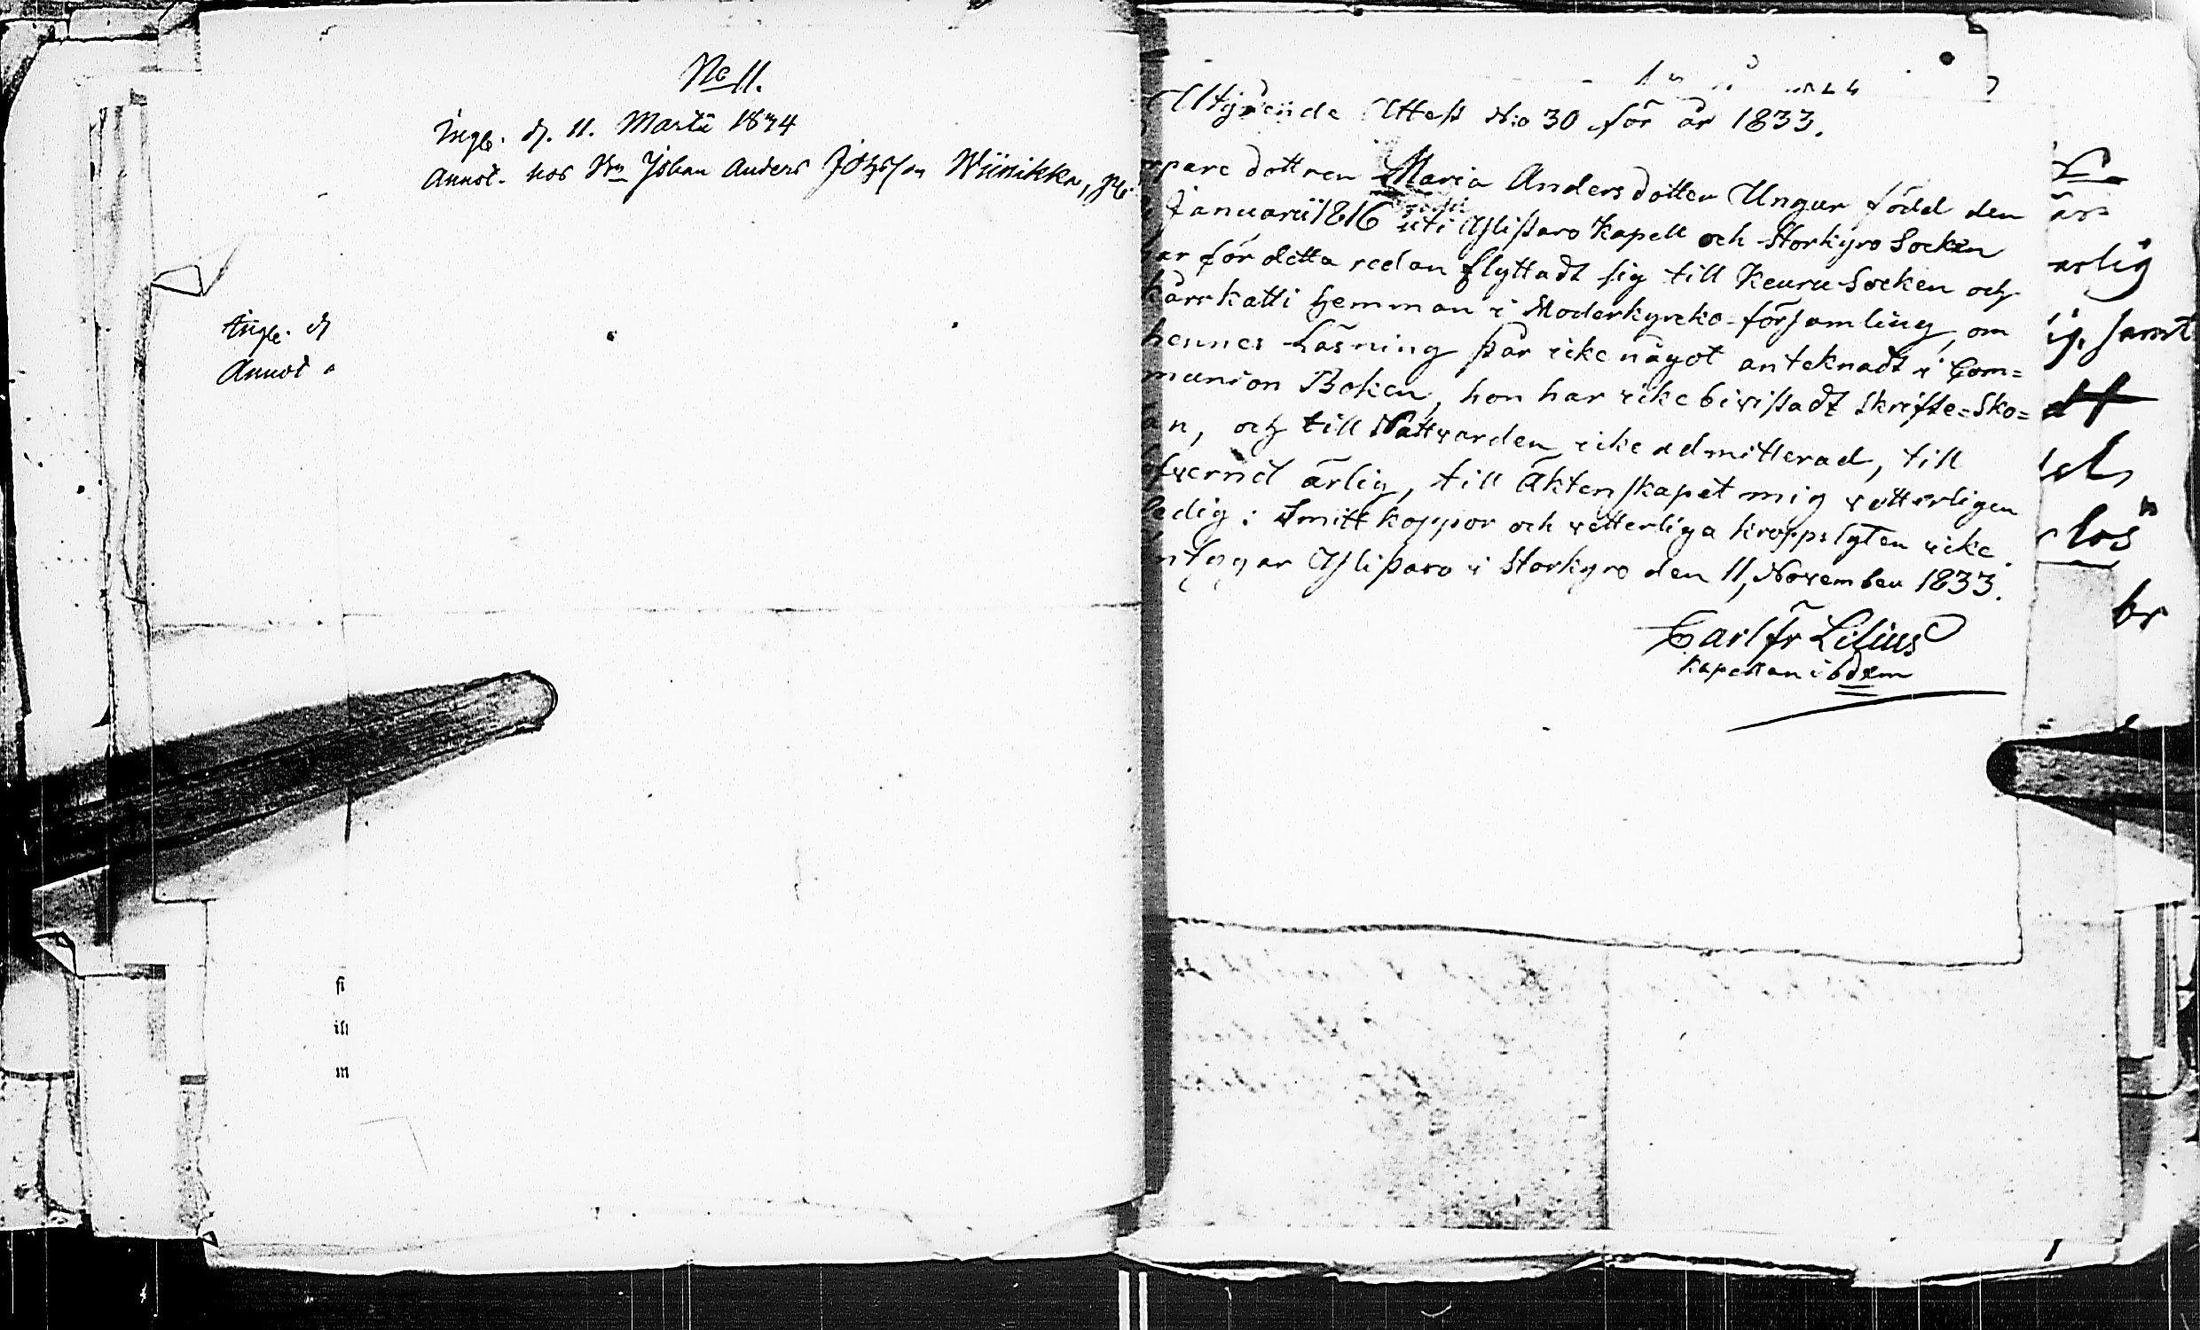 No 11.
Ingb. d. 11. Martii 1834
Annot. hos Bn Johan Anders Johsson Wiinikka,
Ingb. d
Annot
fi
ist
m
Utgående Attest N:o 30 för år 1833.
pare dottren Maria Andersdotter Ungar född den
Januarii 1816 uti Ylistaro Kapell och Storkyro Socken
har för detta redan flyttadt sig till Keuru Socken och
hemman i Moderkyrko-församling, om
hennes Läsning står icke något anteknadt i Com=
munion Boken, hon har icke bivistadt Skrifte=Sko=
an, och till Nattvarden icke admitterad, till
frernd ärlig, till Äktenskapet mig vetterligen
ledig; Smittkoppor och vetterliga kroppslyten icke
Ylistaro i Storkyro den 11, November 1833.
Carl Fr Lilius
Kapellan ibdem
är
arlig
samt
lös
br